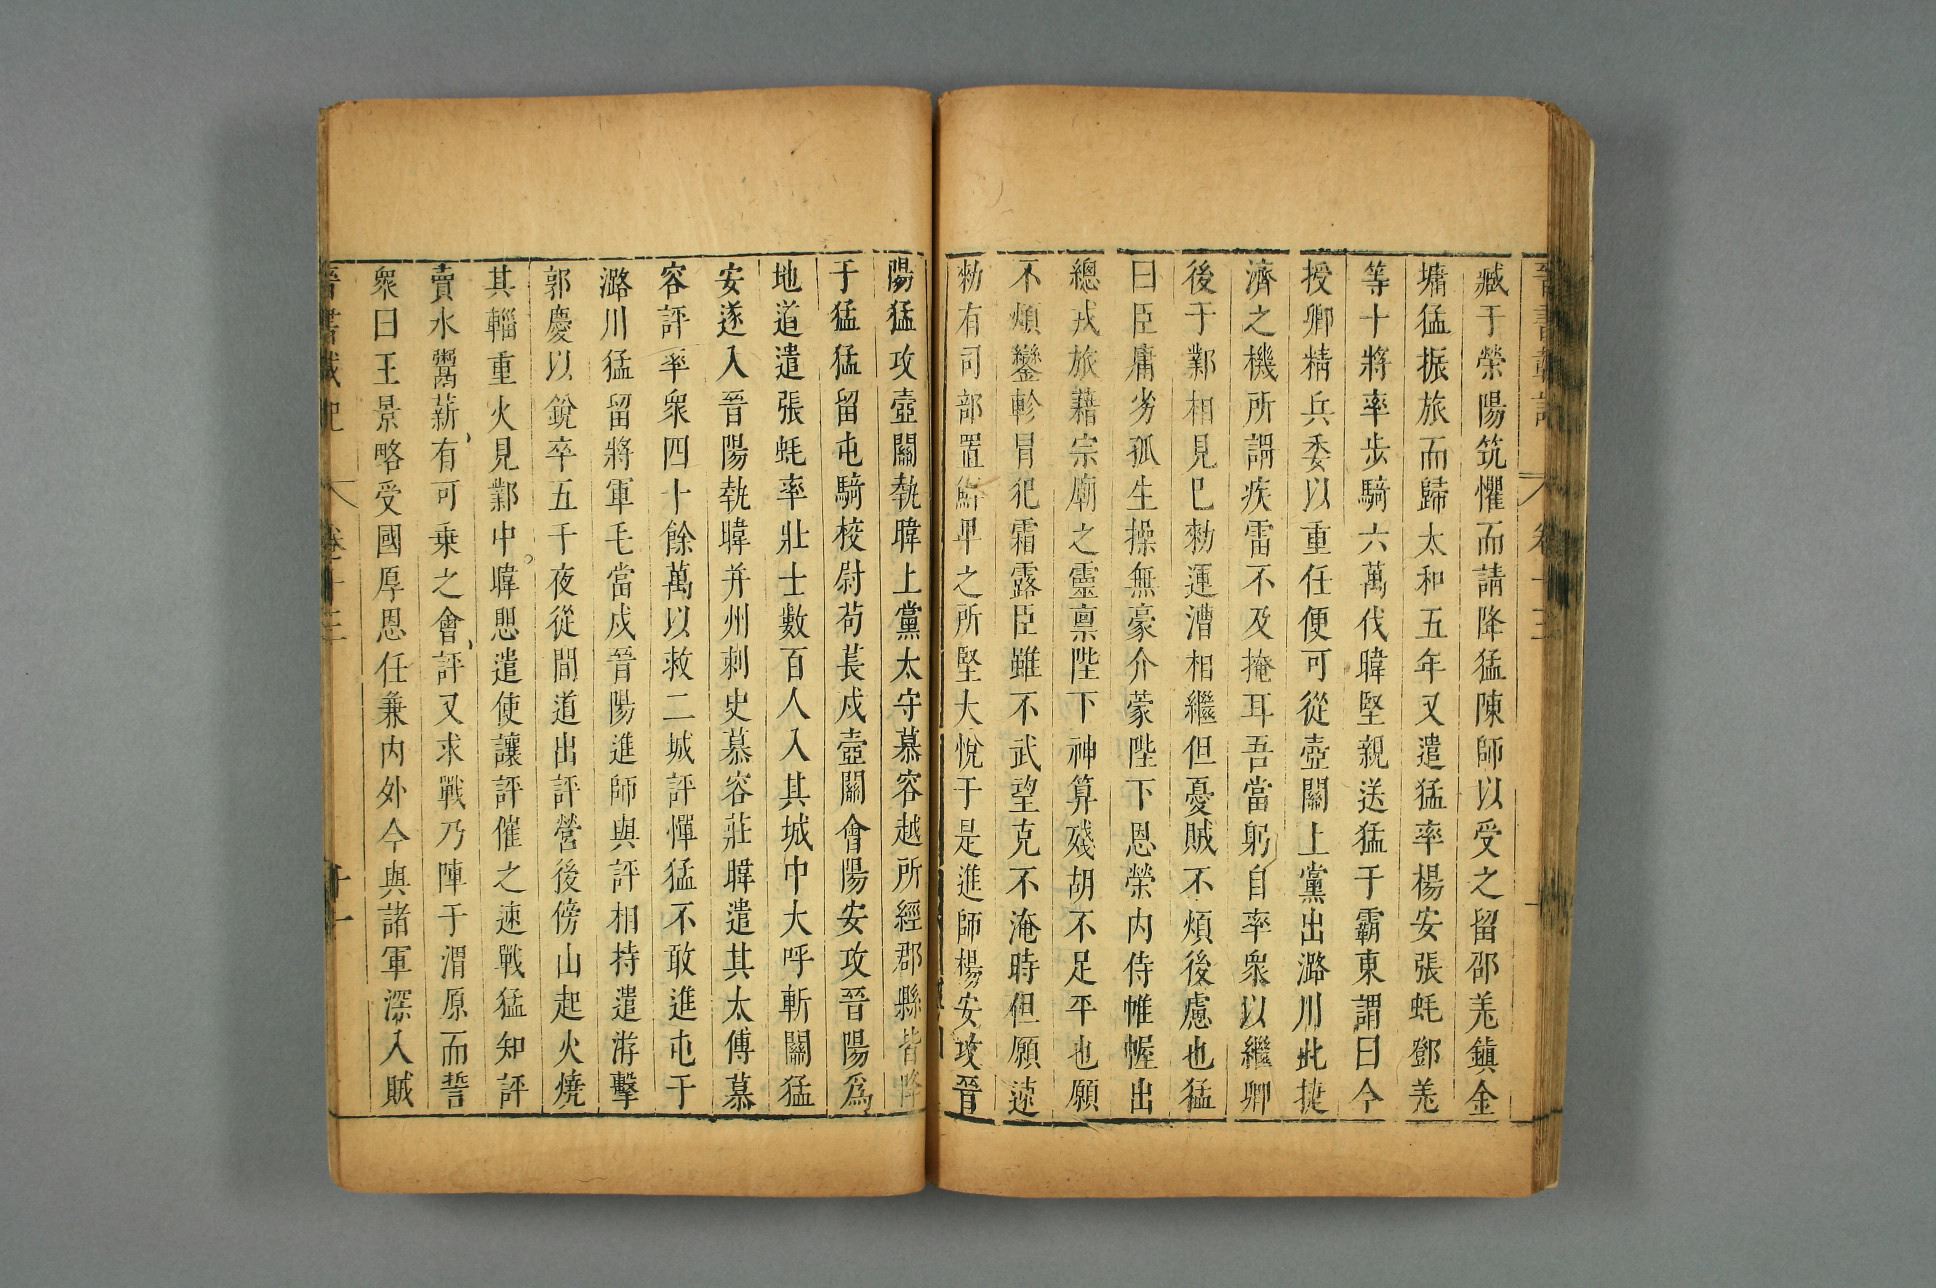 臧于滎陽筑懼而請降猛陳師以受之留邵羗鎮金
墉猛振旅而歸太和五年又遣猛率楊安張蚝鄧羗
等十將率步騎六萬伐暐堅親送猛于霸東謂曰今
授卿精兵委以重任便可從壺關上黨出潞川此捷
濟之機所謂疾雷不及掩耳吾當躬自率衆以繼卿
後于鄴相見已勑運漕相繼但憂賊不煩後慮也猛
曰臣庸劣孤生操無豪介蒙陛下恩榮内侍帷幄出
總戎旅藉宗廟之靈禀陛下神算殘胡不足平也願
不煩鑾軫冒犯霜露臣雖不武望克不淹時但願速
勑有司部置鮮卑之所堅大悅于是進師楊安攻晉
陽猛攻壺關執暐上黨太守慕容越所經郡縣皆降
于猛猛留屯騎校尉苟萇戍壺關會陽安攻晉陽爲
地道遣張蚝率壯士數百人入其城中大呼斬關猛
安遂入晉陽執暐并州刺史慕容莊暐遣其太傅慕
容評率衆四十餘萬以救二城評憚猛不敢進屯于
潞川猛留將軍毛當戍晉陽進師與評相持遣游擊
郭慶以銳卒五千夜從間道出評營後傍山起火燒
其輜重火見鄴中暐懼遣使讓評催之速戰猛知評
賣水鬻薪有可乗之會評又求戰乃陣于渭原而誓
衆曰王景略受國厚恩任兼内外今與諸軍深入賊
卷十三
十一